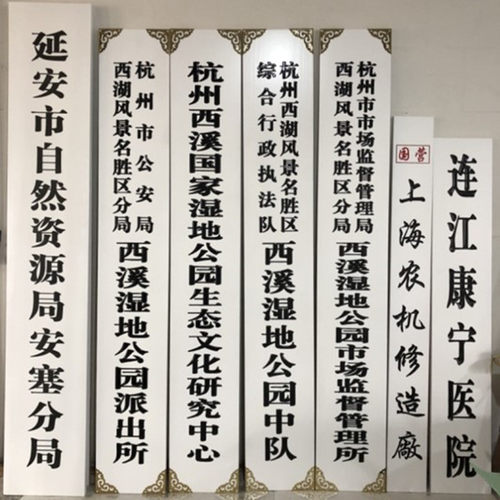 延安市自然资源局安塞分局
杭州市公安局
西湖风景名胜区分局
西溪湿地公园派出所
杭州西溪国家湿地公园生态文化研究中心
杭州西湖风景名胜区
综合行政执法队
西溪湿地公园中队
杭州市市场监督管理局
西湖风景名胜区分局
西溪湿地公园市场监督管理所
国营
上海农机修造廠
连江康宁医院